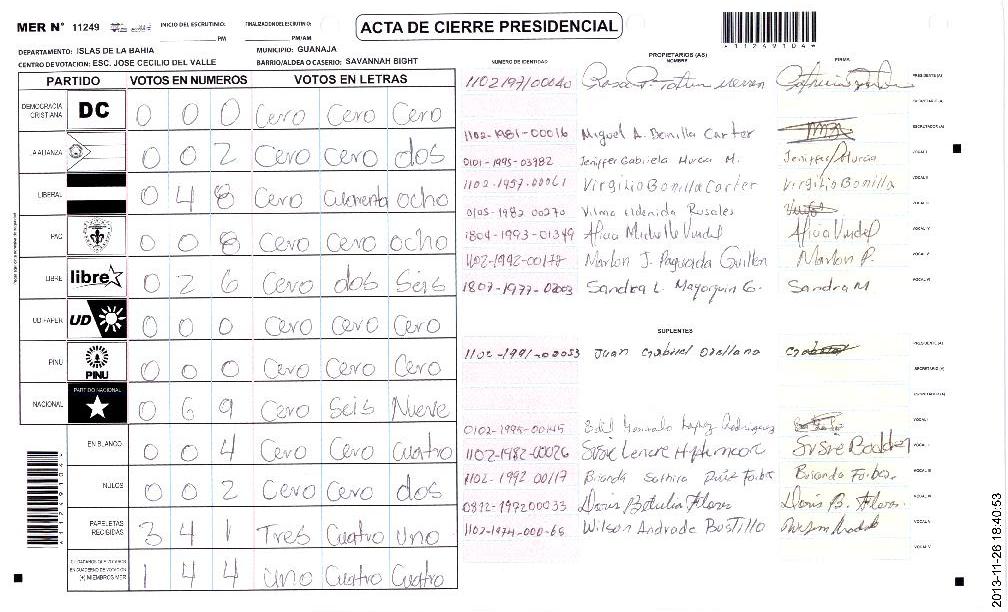 MER N° 11249 INICIO DEL ESCRUTINIO: PM FINALIZACION DEL ESCRUTINIO: PM/AM
ACTA DE CIERRE PRESIDENCIAL
A11249104A
DEPARTAMENTO: ISLAS DE LA BAHIA MUNICIPIO: GUANAJA
CENTRO DE VOTACION: ESC. JOSE CECILIO DEL VALLE BARRIO/ALDEA O CASERIO: SAVANNAH BIGHT
PARTIDO VOTOS EN NUMEROS VOTOS EN LETRAS
DEMOCRACIA CRISTIANA DC 0 0 0 Cero Cero Cero
A ALIANZA 0 0 2 Cero Cero dos
LIBERAL 0 4 8 Cero Cuarenta ocho
PAC 0 0 8 Cero Cero ocho
LIBRE libre 0 2 6 Cero dos Seis
UD FAPER UD 0 0 0 Cero Cero Cero
PINU PINU 0 0 0 Cero Cero Cero
NACIONAL PARTIDO NACIONAL 0 6 9 Cero Seis Nueve
EN BLANCO 0 0 4 Cero Cero Cuatro
NULOS 0 0 2 Cero Cero dos
PAPELETAS RECIBIDAS 3 4 1 Tres Cuatro uno
(+) MIEMBROS MER 1 4 4 uno Cuatro Cuatro
PROPIETARIOS (AS)
NUMERO DE IDENTIDAD NOMBRE FIRMA
PRESIDENTE(A)
SECRETARIO(A)
1102-1981-00016 Miguel A. Bonilla Carter ESCRUTADOR(A)
0101-1995-03982 Jeniffer Gabriela Murcia M. Jeniffer Murcia VOCAL I
1102-1957-00061 Virgilio Bonilla Carter Virgilio Bonilla VOCAL II
0105-1982-00270 Vilma Rosales VOCAL III
1804-1993-01349 VOCAL IV
1102-1992-00178 Marlon J. Paguada Guillen Marlon P. VOCAL V
1807-1977-0203 Sandra L. Mayorquin G. Sandra M VOCAL VI
SUPLENTES
1102-1991-00053 Juan Gabriel Orellana PRESIDENTE(A)
SECRETARIO(A)
ESCRUTADOR(A)
0102-1995-00445 Lopez Rodriguez VOCAL I
1102-1982-00026 Susie Bodden
1102-1992 00117 Forbes VOCAL III
0812-197200033 Doris Flores Doris B. Flores VOCAL IV
Wilson Andrade Bustillo VOCAL V
VOCAL VI
A11249104A
2013-11-26 18:40:53